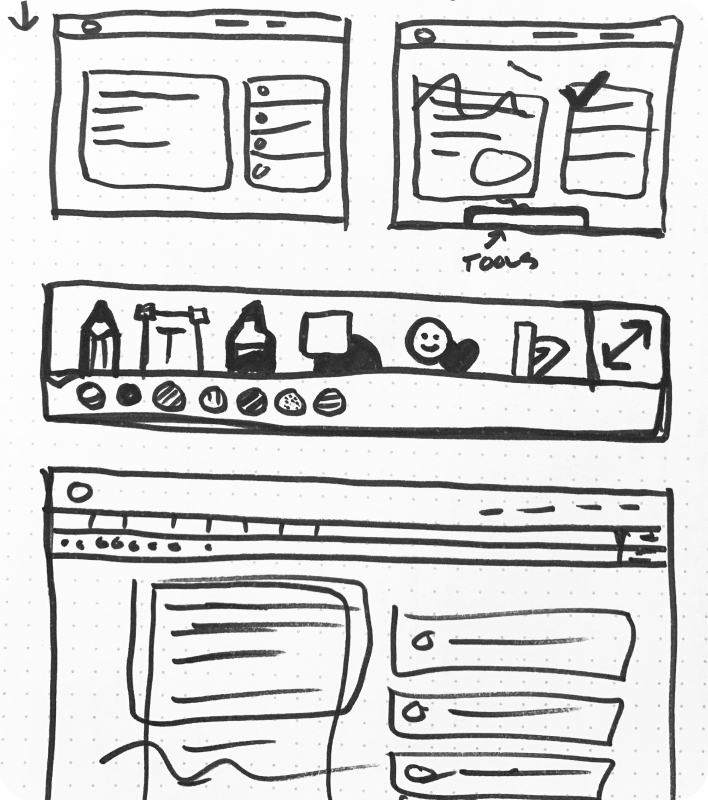 TOOLS
T